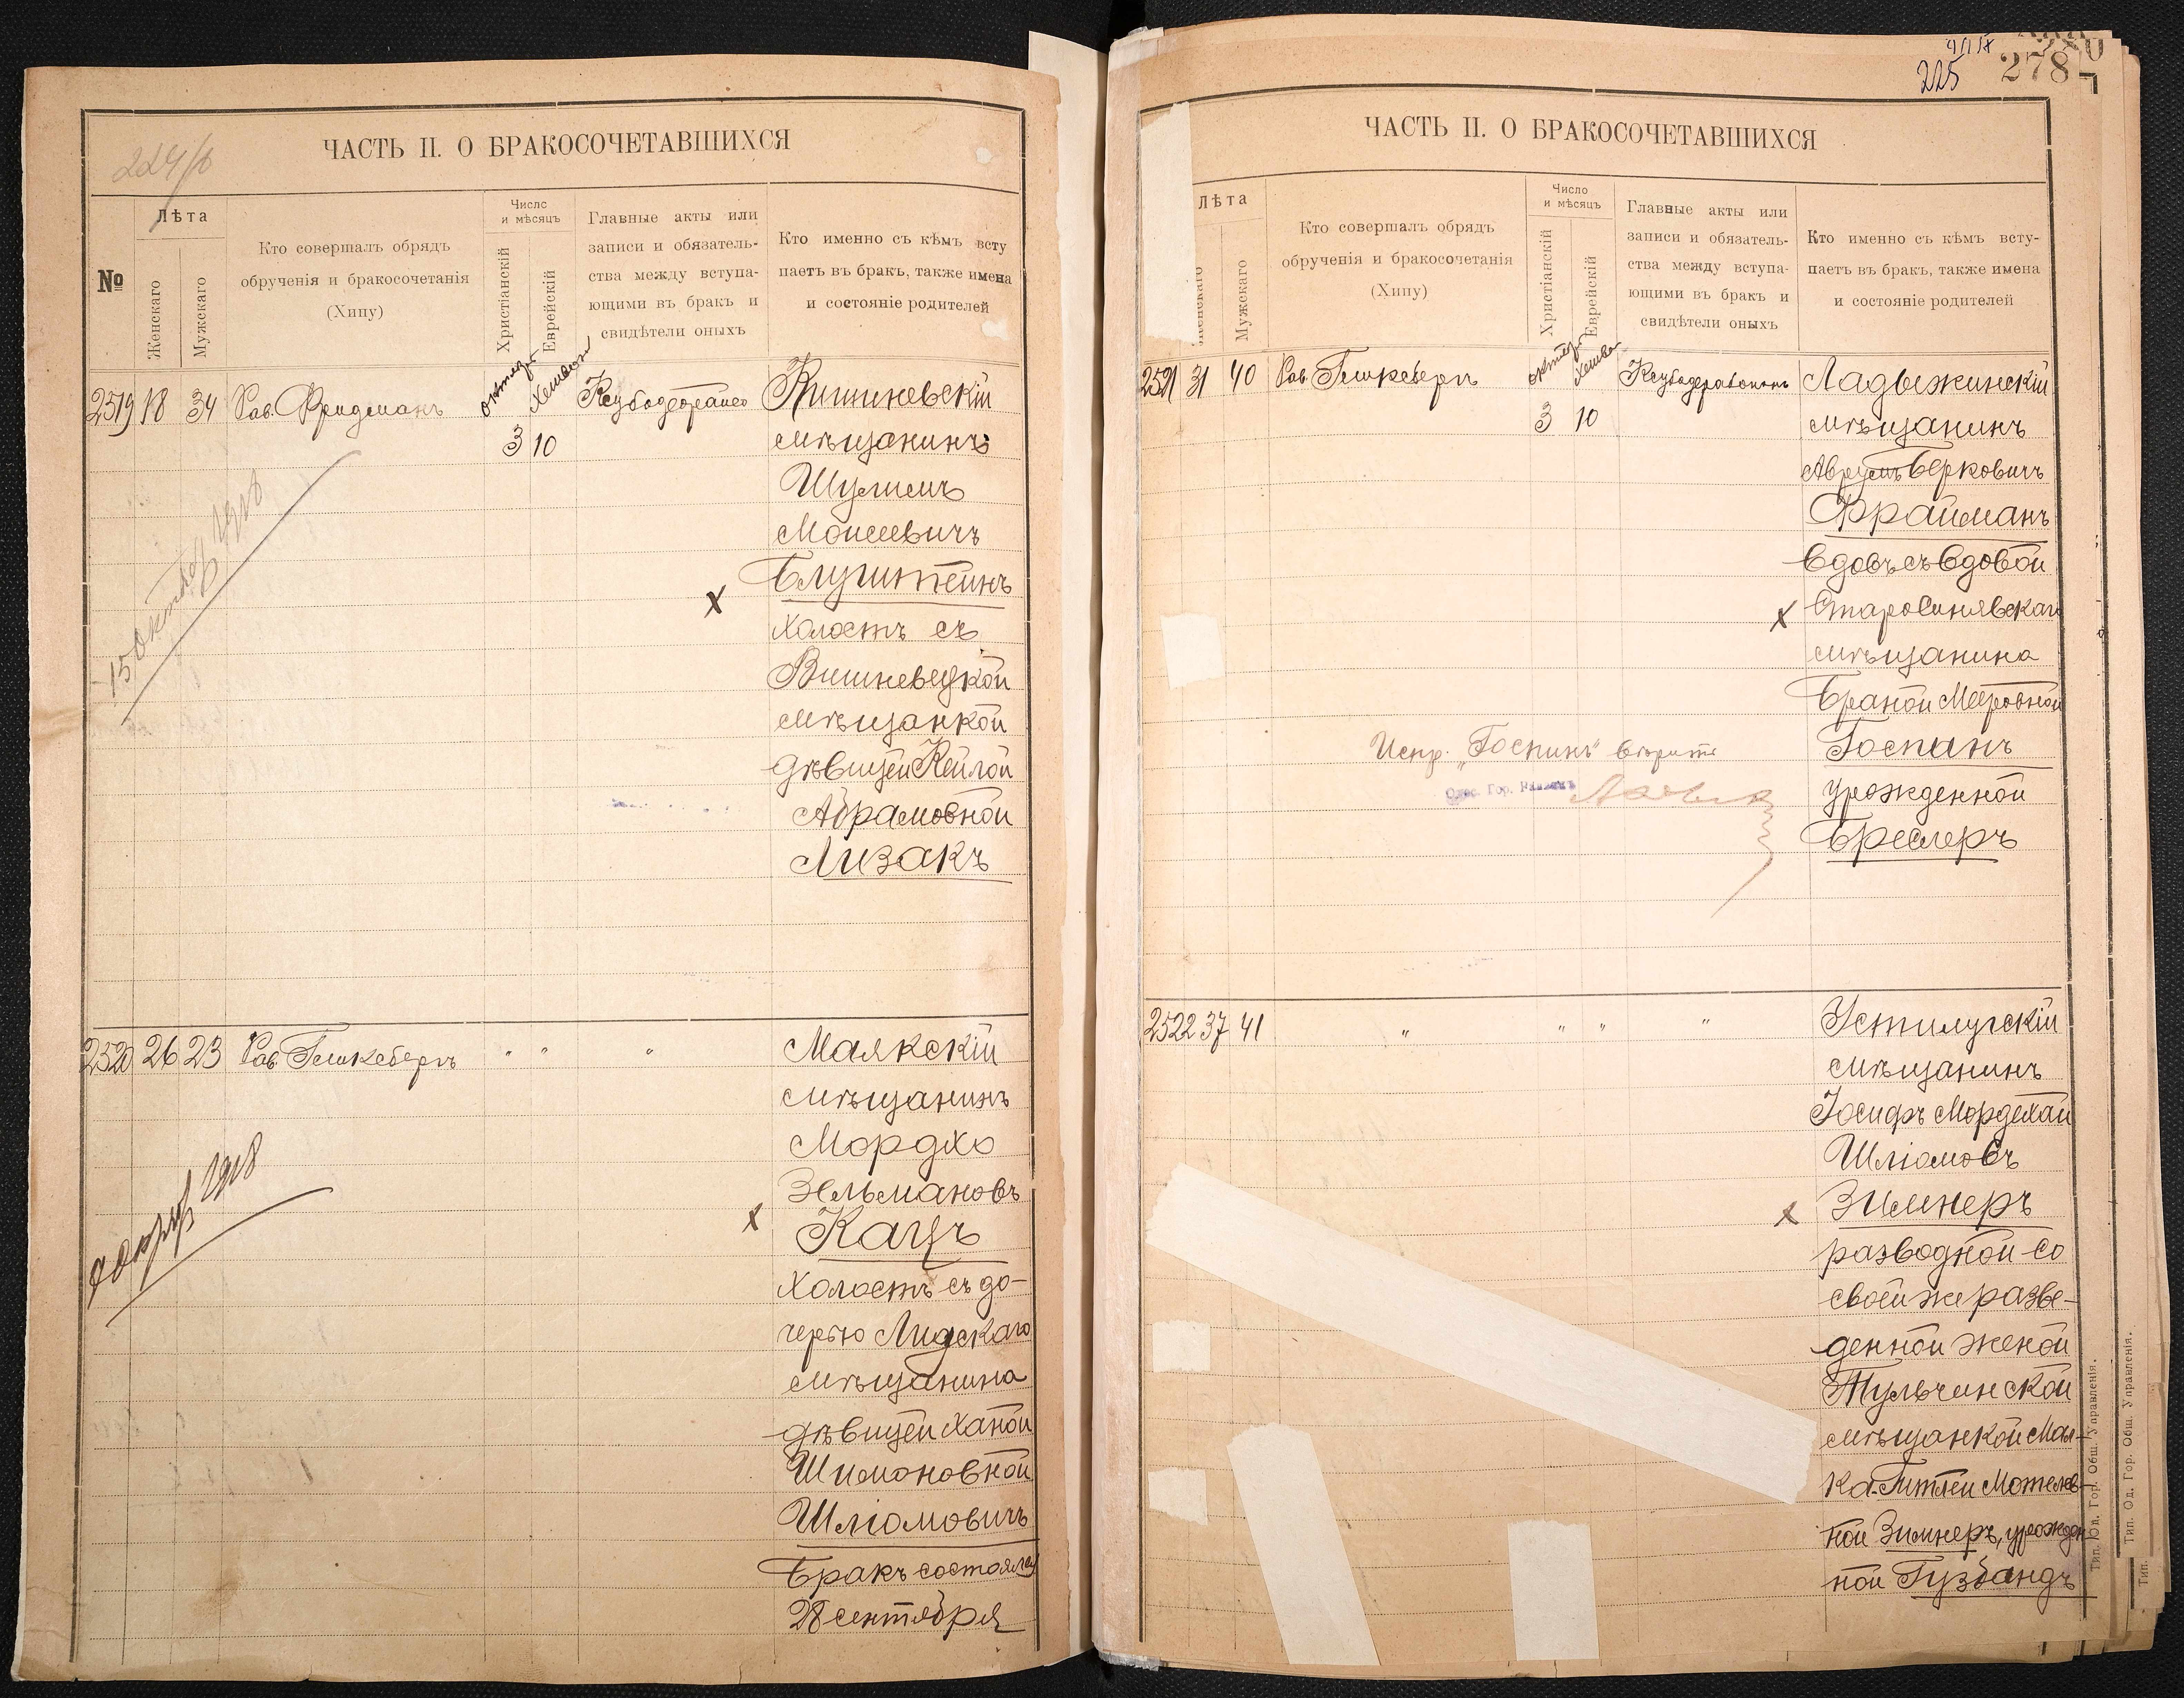 224/б
ЧАСТЬ II. О БРАКОСОЧЕТАВШИХСЯ
№
Лѣта
Женскаго
Мужскаго
Кто совершалъ обрядъ
обрученія и бракосочетанія
(Хипу)
Число
и мѣсяцъ
Христіанскій
Еврейскій
Главные акты или
записи и обязатель-
ства между вступа-
ющими въ бракъ и
свидѣтели оныхъ
Кто именно съ кѣмъ всту
паетъ въ бракъ, также имена
и состояніе родителей
2519 18 34 Рав. Фридманъ
3 10
Кишиневскій
мѣщанинъ
Шулимъ
Моисеевичъ
Блуштейнъ
х
холостъ съ
Вишневецкой
мѣщанкой
дѣвицей Кейлой
Абрамовной
Лизакъ
15 октября 1918
2520 26 23 Рав. Гешкеберъ " " "
Маякскій
мѣщанинъ
Мордхо
Зельмановъ
х Кацъ
холостъ съ до-
черью Лидскаго
мѣщанина
дѣвицей Ханой
Шимоновной
Шліомовичъ
Бракъ состоялся
28 сентября
1918
225
278
ЧАСТЬ II. О БРАКОСОЧЕТАВШИХСЯ
Лѣта
Женскаго
Мужскаго
Кто совершалъ обрядъ
обрученія и бракосочетанія
(Хипу)
Число
и мѣсяцъ
Христіанскій
Еврейскій
Главные акты или
записи и обязатель-
ства между вступа-
ющими въ бракъ и
свидѣтели оныхъ
Кто именно съ кѣмъ всту-
паетъ въ бракъ, также имена
и состояніе родителей
2521 31 40 Рав. Гешкеберъ
3 10
Ладыжинскій
мѣщанинъ
Аврумъ Берковичъ
Фрайманъ
вдовъ съ вдовой
х Старосинявскаго
мѣщанина
Браной Мееровной
Госпанъ
урожденной
Бреслеръ
Испр. „Госпинъ" вѣрить
Одес. Гор. Раввинъ
2522 37 41 " " " "
Устилугскій
мѣщанинъ
Іосифъ Мордехай
Шліомовъ
х Зимнеръ
разводной со
своей же разве-
денной женой
Тульчинской
мѣщанкой Мал-
ка-Гитлей Мотелев-
ной Зимнеръ, урожден
ной Гузбандъ
Тип. Од. Гор. Общ. Управленія.
Тип. Од. Гор. Общ. Управленія.
Тип.